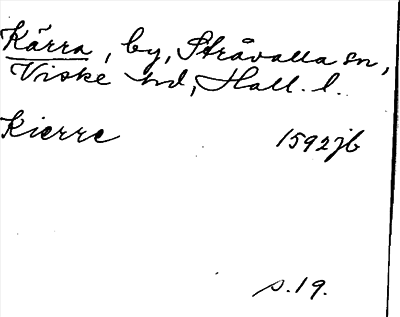 Kärra, by, Stråvalla sn,
Viske hd, Hall. l.
Kierre 1592 jb
s. 19.